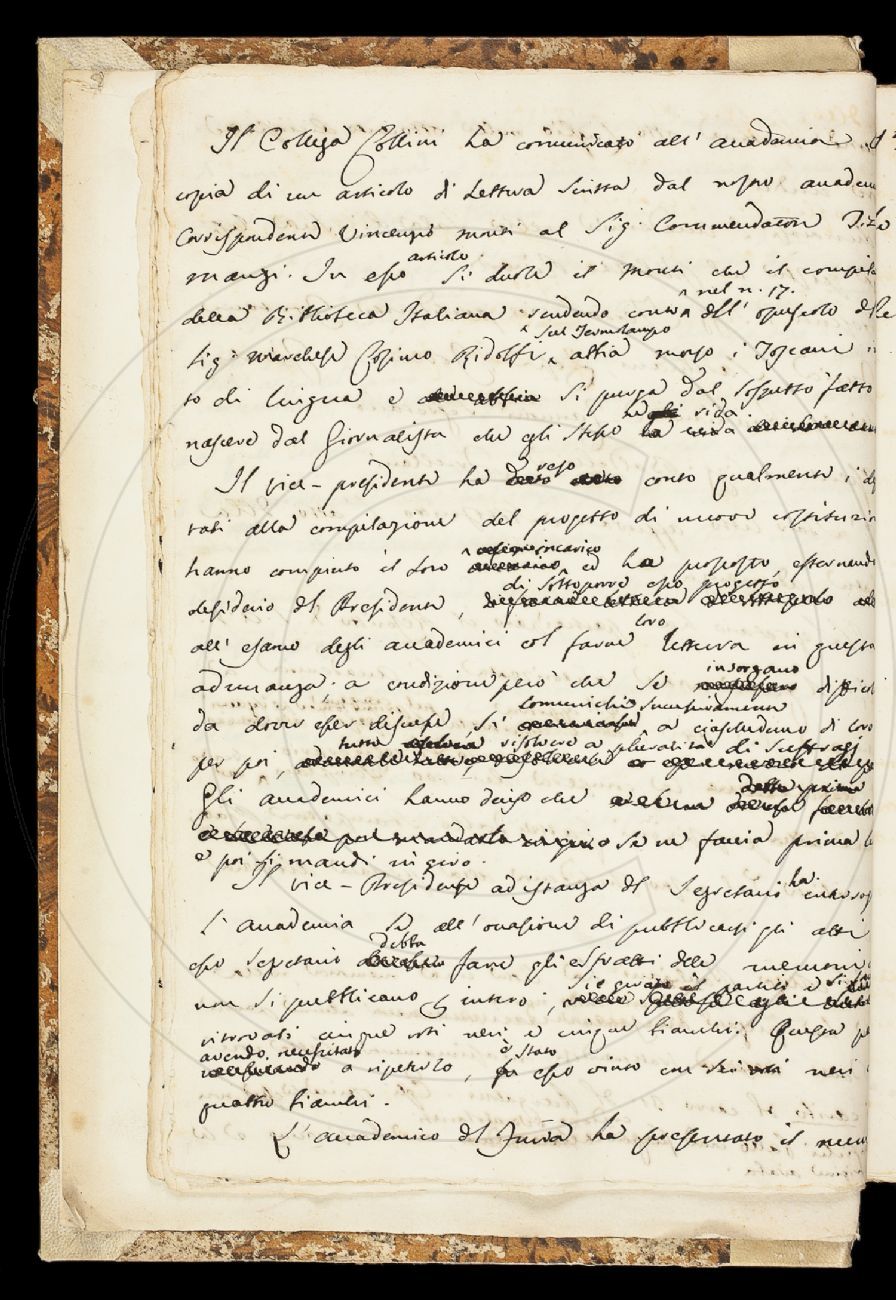 Il Collega Collini ha comunicato all' accademia
copia di un articolo di Lettera scritta dal nostro accadem
corrispondente Vincenzo Monti al Sig. Commendatore Tizia
manzi. In esso articolo si duole il Monti che il compil
della Biblioteca Italiana rendendo conto nel n. 17. dell' opuscolo del
Sig. Marchese Cosimo Ridolfi sul Termolampo abbia morso i Toscani
to di lingua e si purga dal sospetto fatto
nascere dal Giornalista che egli stesso ne rida
Il vice-presidente ha reso conto qualmente i de
tati alla compilazione del progetto di nuove costituzio
hanno compiuto il loro incarico ed ha proposto, esternando
desiderio del Presidente, di sottoporre esso progetto
all' esame degli accademici col farne loro lettura in questa
adunanza; a condizione però che se insorgano difficol
da dover esser discusse, si comunichi successivamente a ciascheduno di loro
per poi, tutto risolvere a pluralità di suffragj
Gli accademici hanno deciso che
se ne faccia prima
e poi si mandi in giro.
Il vice-Presidente ad istanza del Segretario ha interrog
l' accademia se all' occasione di pubblicarsi gli atti
esso segretario debba fare gli estratti delle memorie
non si pubblicano per intero,
ritrovati cinque voti neri e cinque bianchi. Questa
avendo necessitato a ripeterlo, è stato esso vinto con sei neri
quattro bianchi.
L' accademico del Furia ha presentato il